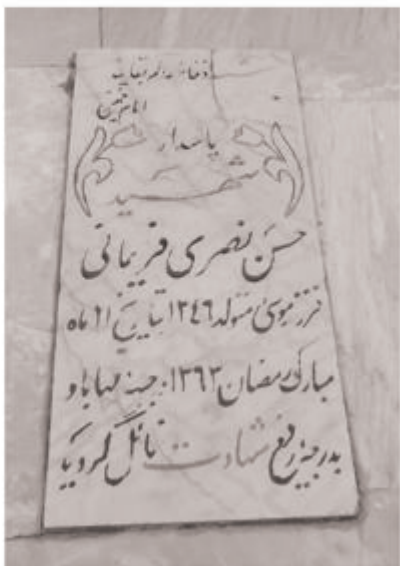 امام خمینی
پاسدار
شهید
حسن نصری فریمانی
فرزند موسی متولد ۱۳۴۶ بتاریخ ۱۱ ماه
مبارک رمضان ۱۳۶۳ جبهه مهاباد
بدرجه رفیع شهادت نائل گردید